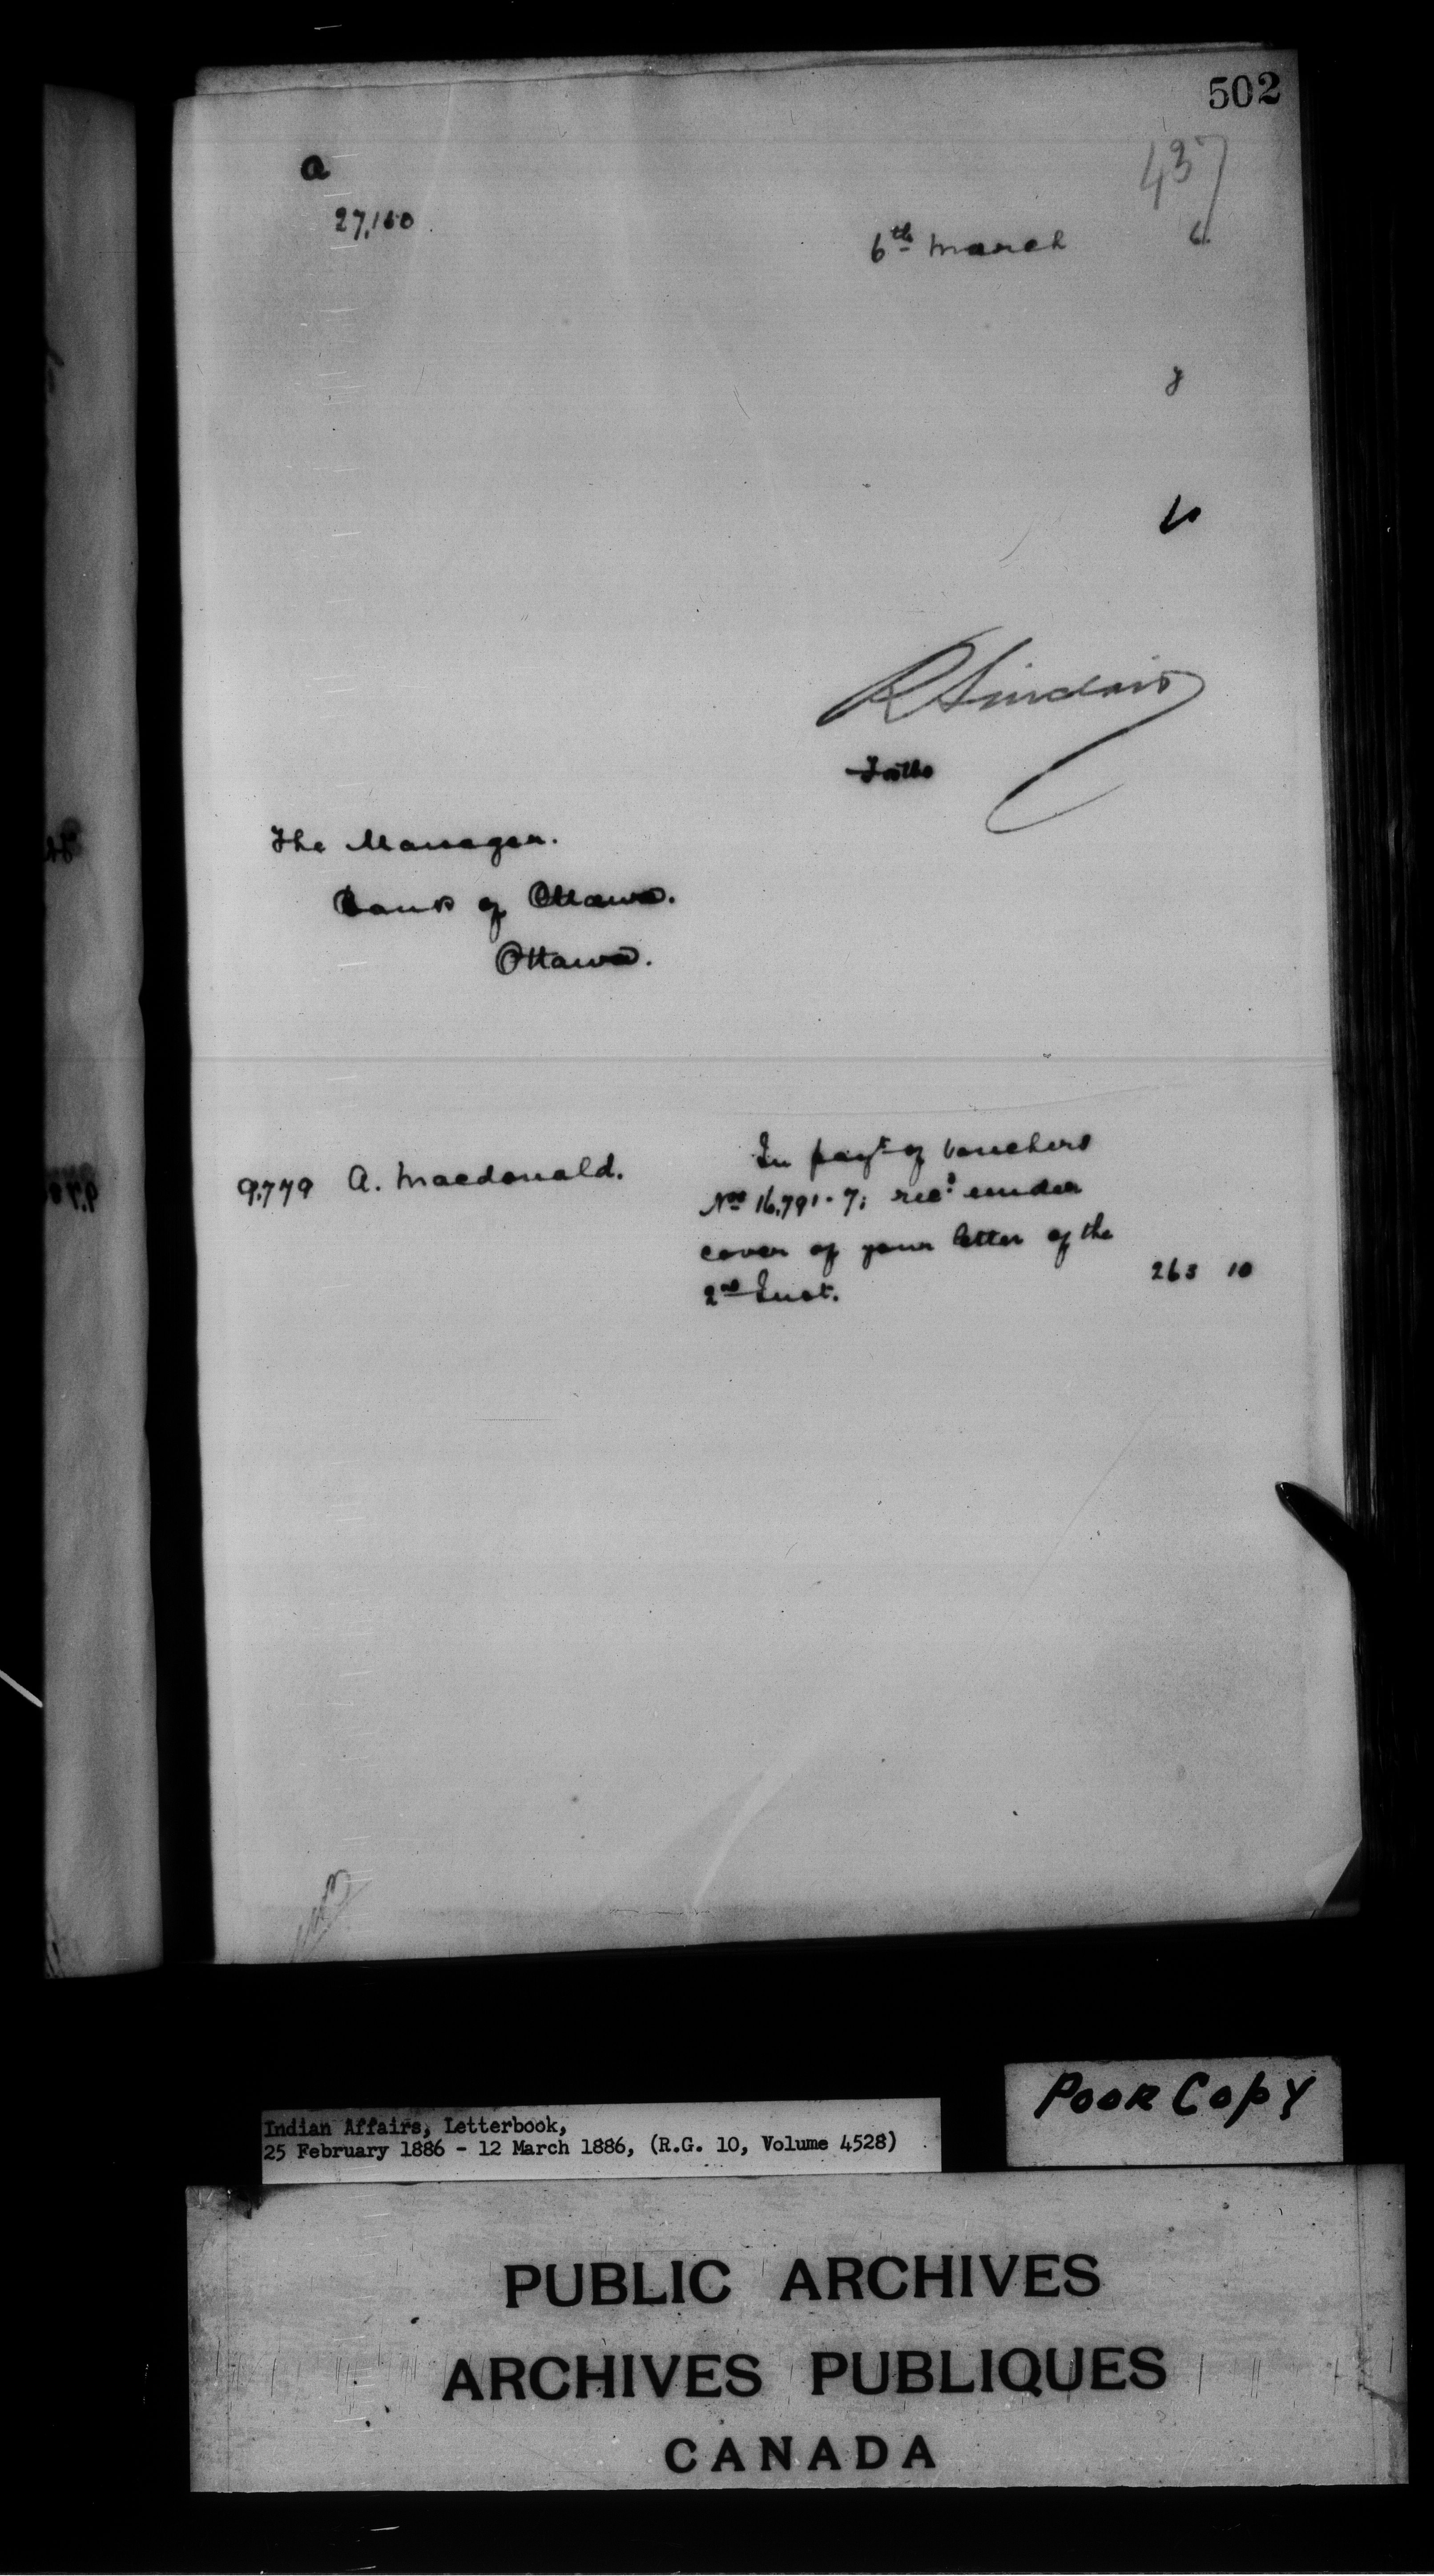 502
437
a
27,160.
6th March 6.
R Sinclair
The Manager.
Bank of Ottawa.
Ottawa.
9,779 A. Macdonald.
In payt of Vouchers
Nos 16,791-7; recd under
cover of your letter of the
2nd Inst.
263 10
Poor Copy
Indian Affairs, Letterbook,
25 February 1886 - 12 March 1886, (R.G. 10, Volume 4528)
PUBLIC ARCHIVES
ARCHIVES PUBLIQUES
CANADA